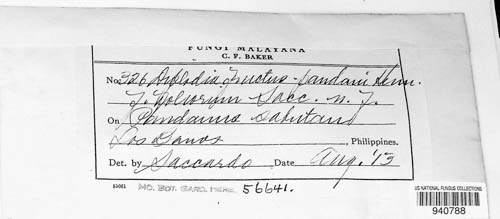 FUNGI MALAYANA
C. F. BAKER
No. 326 Diplodia Fructus-pandani Henn.
f. foliorum Sacc. n. f.
On Pandanus Sabutan
Los Banos, Philippines.
Det. by Saccardo Date Aug. '13
MO. BOT. GARD. HERB. 56641.
US NATIONAL FUNGUS COLLECTIONS
940788